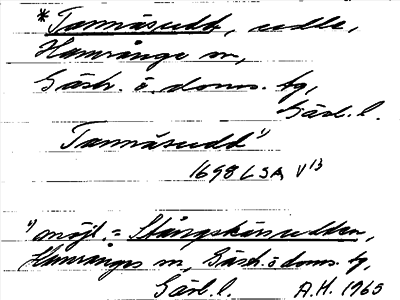 *Tannäsudd, udde,
Hamrånge sn,
Gästr. ö. doms. tg,
Gävl. l.
Tannäsudd¹⁾
1698 LSA V 13
¹⁾ möjl. = Stångskärsudden,
Hamrånges sn, Gästr. ö doms. tg,
Gävl. l. A.H. 1965